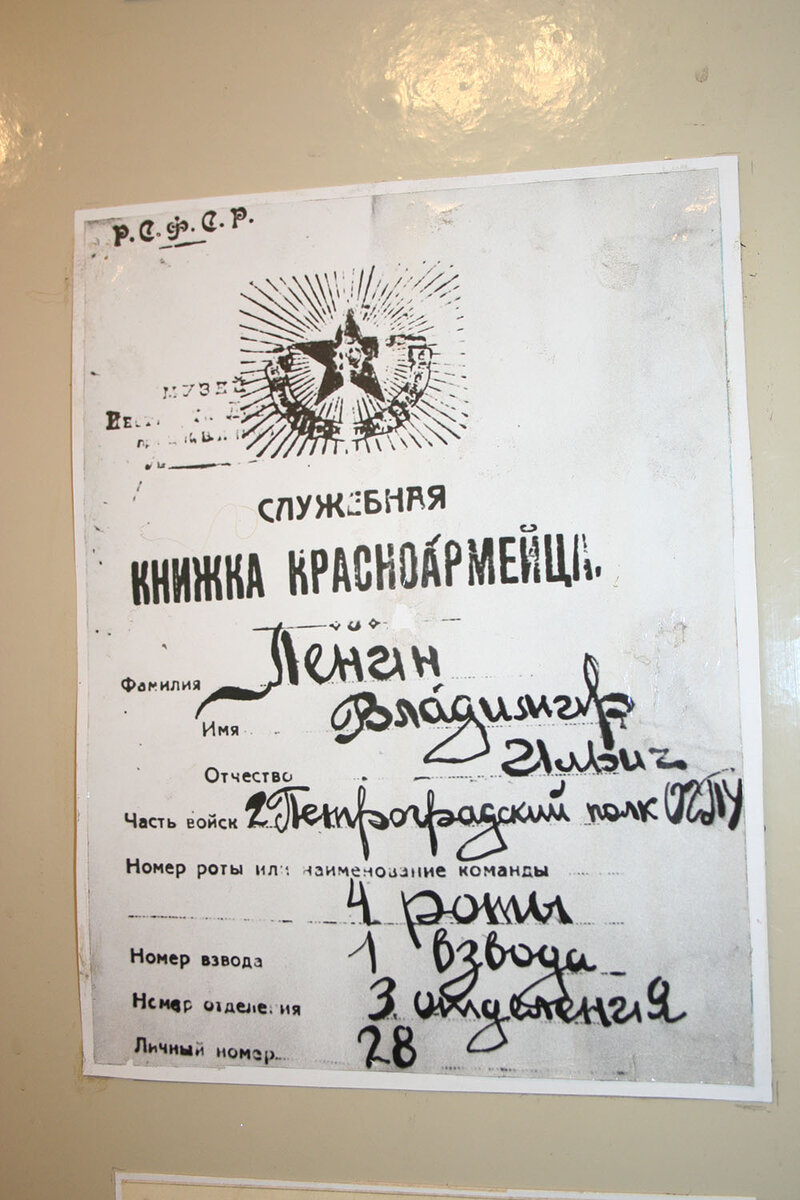 Р.С.Ф.С.Р.
МУЗЕЙ
СЛУЖЕБНАЯ
КНИЖКА КРАСНОАРМЕЙЦА.
Фамилия Ленин
Имя Владимир
Отчество Ильич
Часть войск 2 Петроградский полк ОГПУ
Номер роты или наименование команды
4 роты
Номер взвода 1 взвода
Номер отделения 3 отделения
Личный номер 28